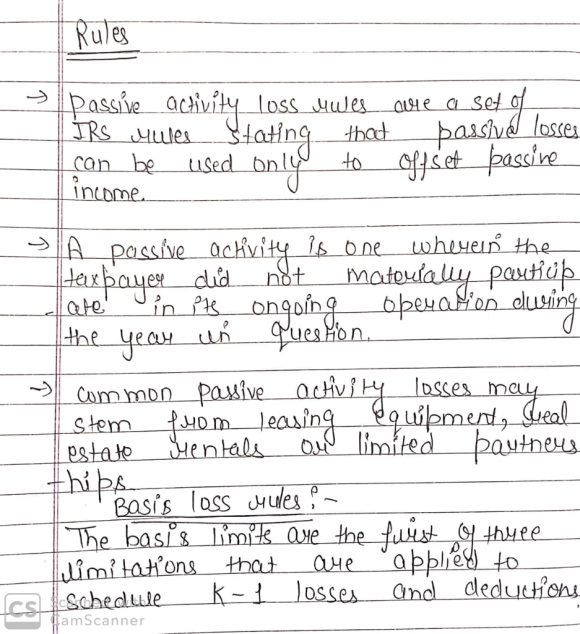 Rules
→ Passive activity loss rules are a set of
IRS rules stating that passive losses
can be used only to offset passive
income.
→ A passive activity is one wherein the
taxpayer did not materially particip
- ate in its ongoing operation during
the year in question.
→ Common passive activity losses may
stem from leasing equipment, real
estate rentals or limited partners
-hips
Basis loss rules :-
The basis limits are the first of three
limitations that are applied to
Schedule K-1 losses and deductions.
CS CamScanner